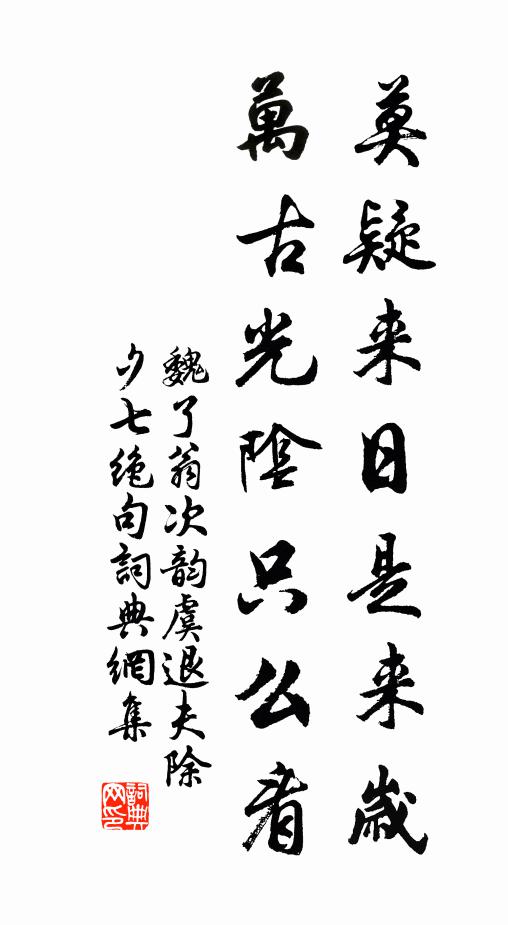 莫疑来日是来歲
萬古光陰只么看
魏了翁次韵虞退夫除
夕七绝句詞典網集
詞典网印